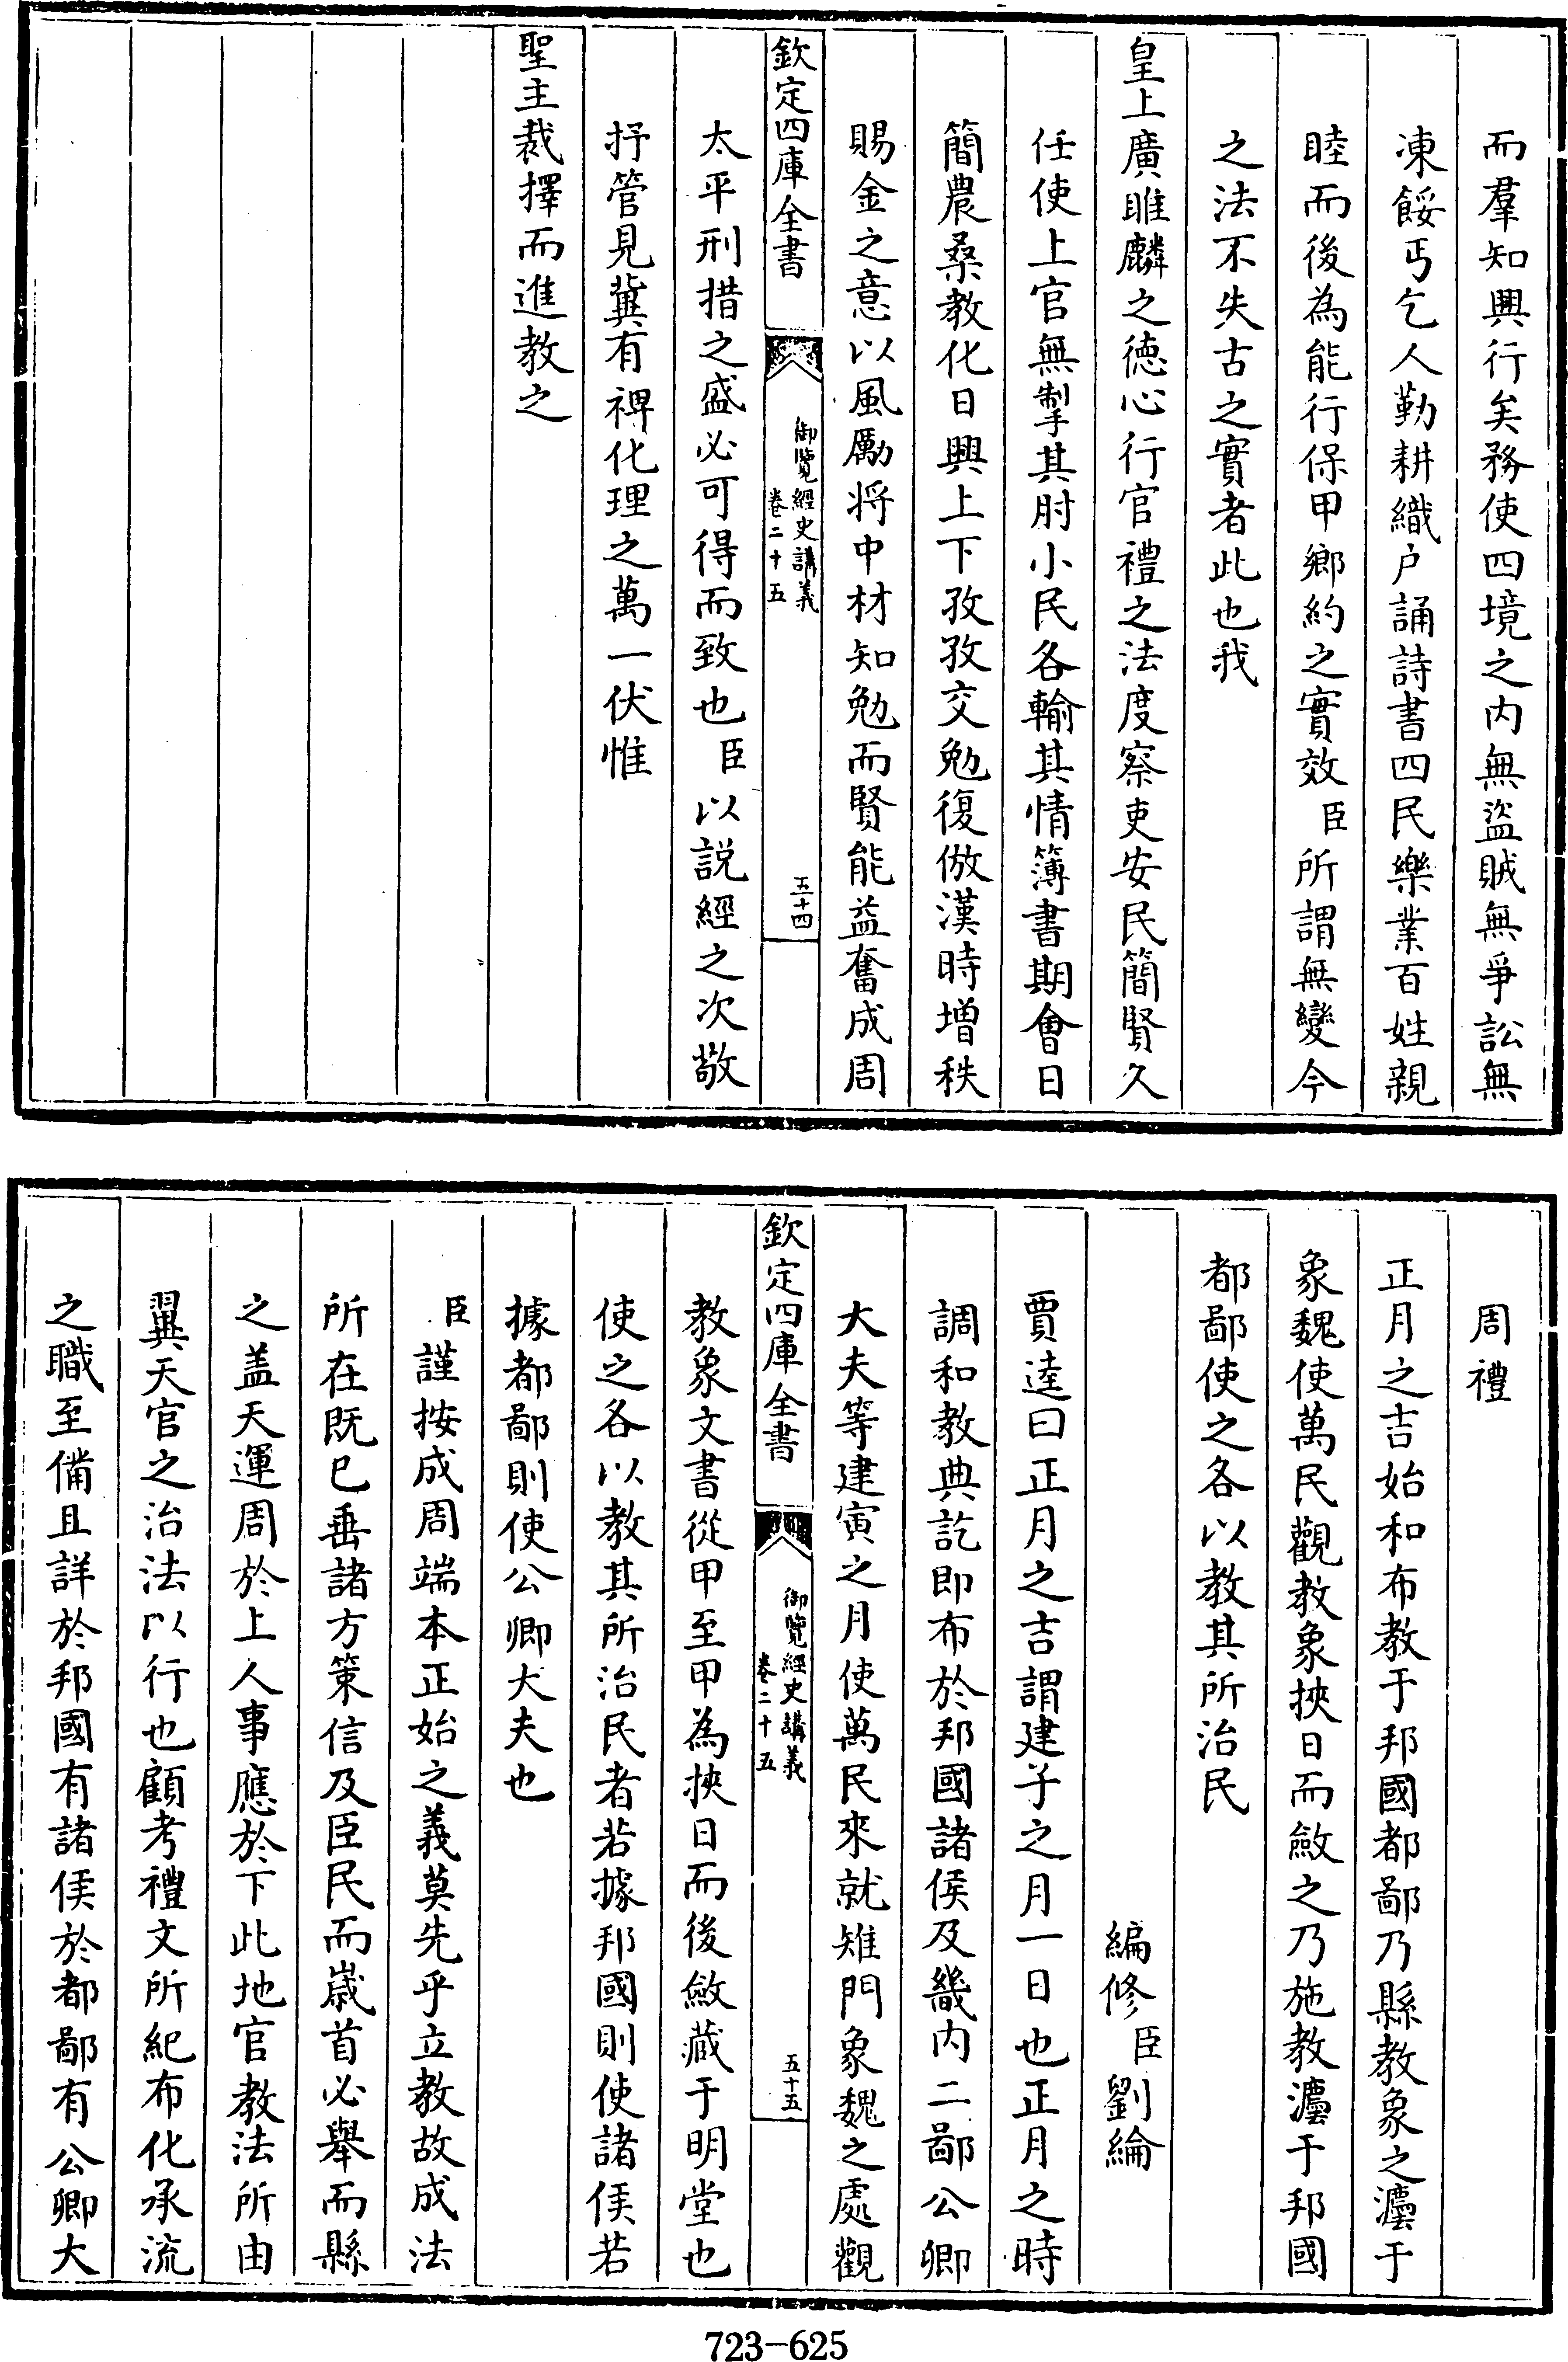 而羣知興行矣務使四境之内無盜賊無爭訟無
凍餒丐乞人勤耕織户誦詩書四民樂業百姓親
睦而後為能行保甲鄉約之實效臣所謂無變今
之法不失古之實者此也我
皇上廣睢麟之德心行官禮之法度察吏安民簡賢久
任使上官無掣其肘小民各輸其情簿書期會日
簡農桑教化日興上下孜孜交勉復倣漢時增秩
賜金之意以風勵将中材知勉而賢能益奮成周
欽定四庫全書
御覽經史講義
卷二十五
五十四
太平刑措之盛必可得而致也臣以說經之次敬
抒管見冀有裨化理之萬一伏惟
聖主裁擇而進教之
周禮
正月之吉始和布教于邦國都鄙乃縣教象之灋于
象魏使萬民觀教象挾日而斂之乃施教灋于邦國
都鄙使之各以教其所治民
編修臣劉綸
賈逵曰正月之吉謂建子之月一日也正月之時
調和教典訖即布於邦國諸侯及畿内二鄙公卿
大夫等建寅之月使萬民來就雉門象魏之處觀
欽定四庫全書
御覽經史講義
卷二十五
五十五
教象文書從甲至甲為挾日而後斂藏于明堂也
使之各以教其所治民者若據邦國則使諸侯若
據都鄙則使公卿大夫也
臣謹按成周端本正始之義莫先乎立教故成法
所在既已垂諸方策信及臣民而嵗首必舉而縣
之盖天運周於上人事應於下此地官教法所由
翼天官之治法以行也顧考禮文所紀布化承流
之職至備且詳於邦國有諸侯於都鄙有公卿大
723-625